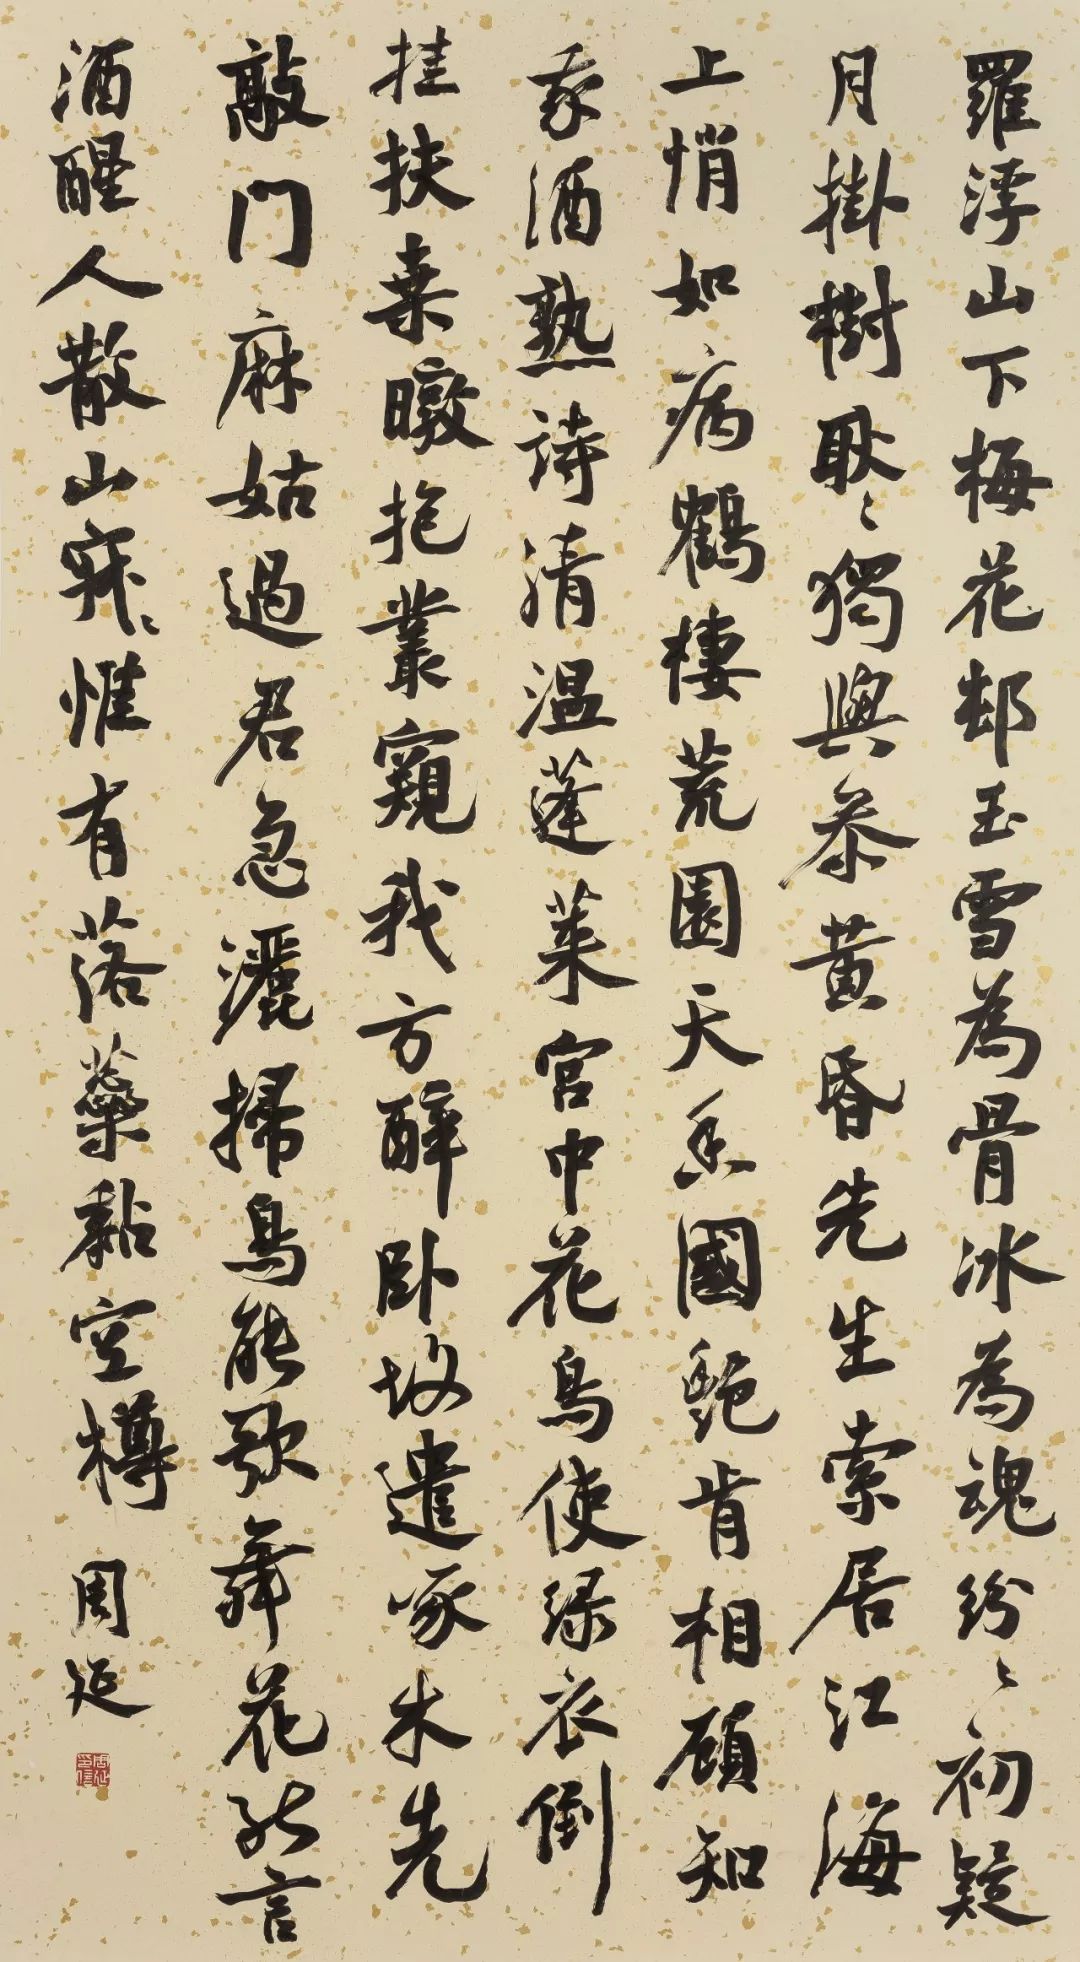 羅浮山下梅花邨玉雪為骨冰為魂紛〻初疑
月掛樹耿〻獨與參黃昏先生索居江海
上悄如病鶴棲荒園天香國艶肯相顧知
我酒熟詩清溫蓬萊宮中花鳥使緑衣倒
挂扶桒暾抱叢窺我方醉卧故遣啄木先
敲門麻姑過君急灑掃鳥能歌舞花能言
酒醒人散山寂〻惟有落蘂黏空樽
周延